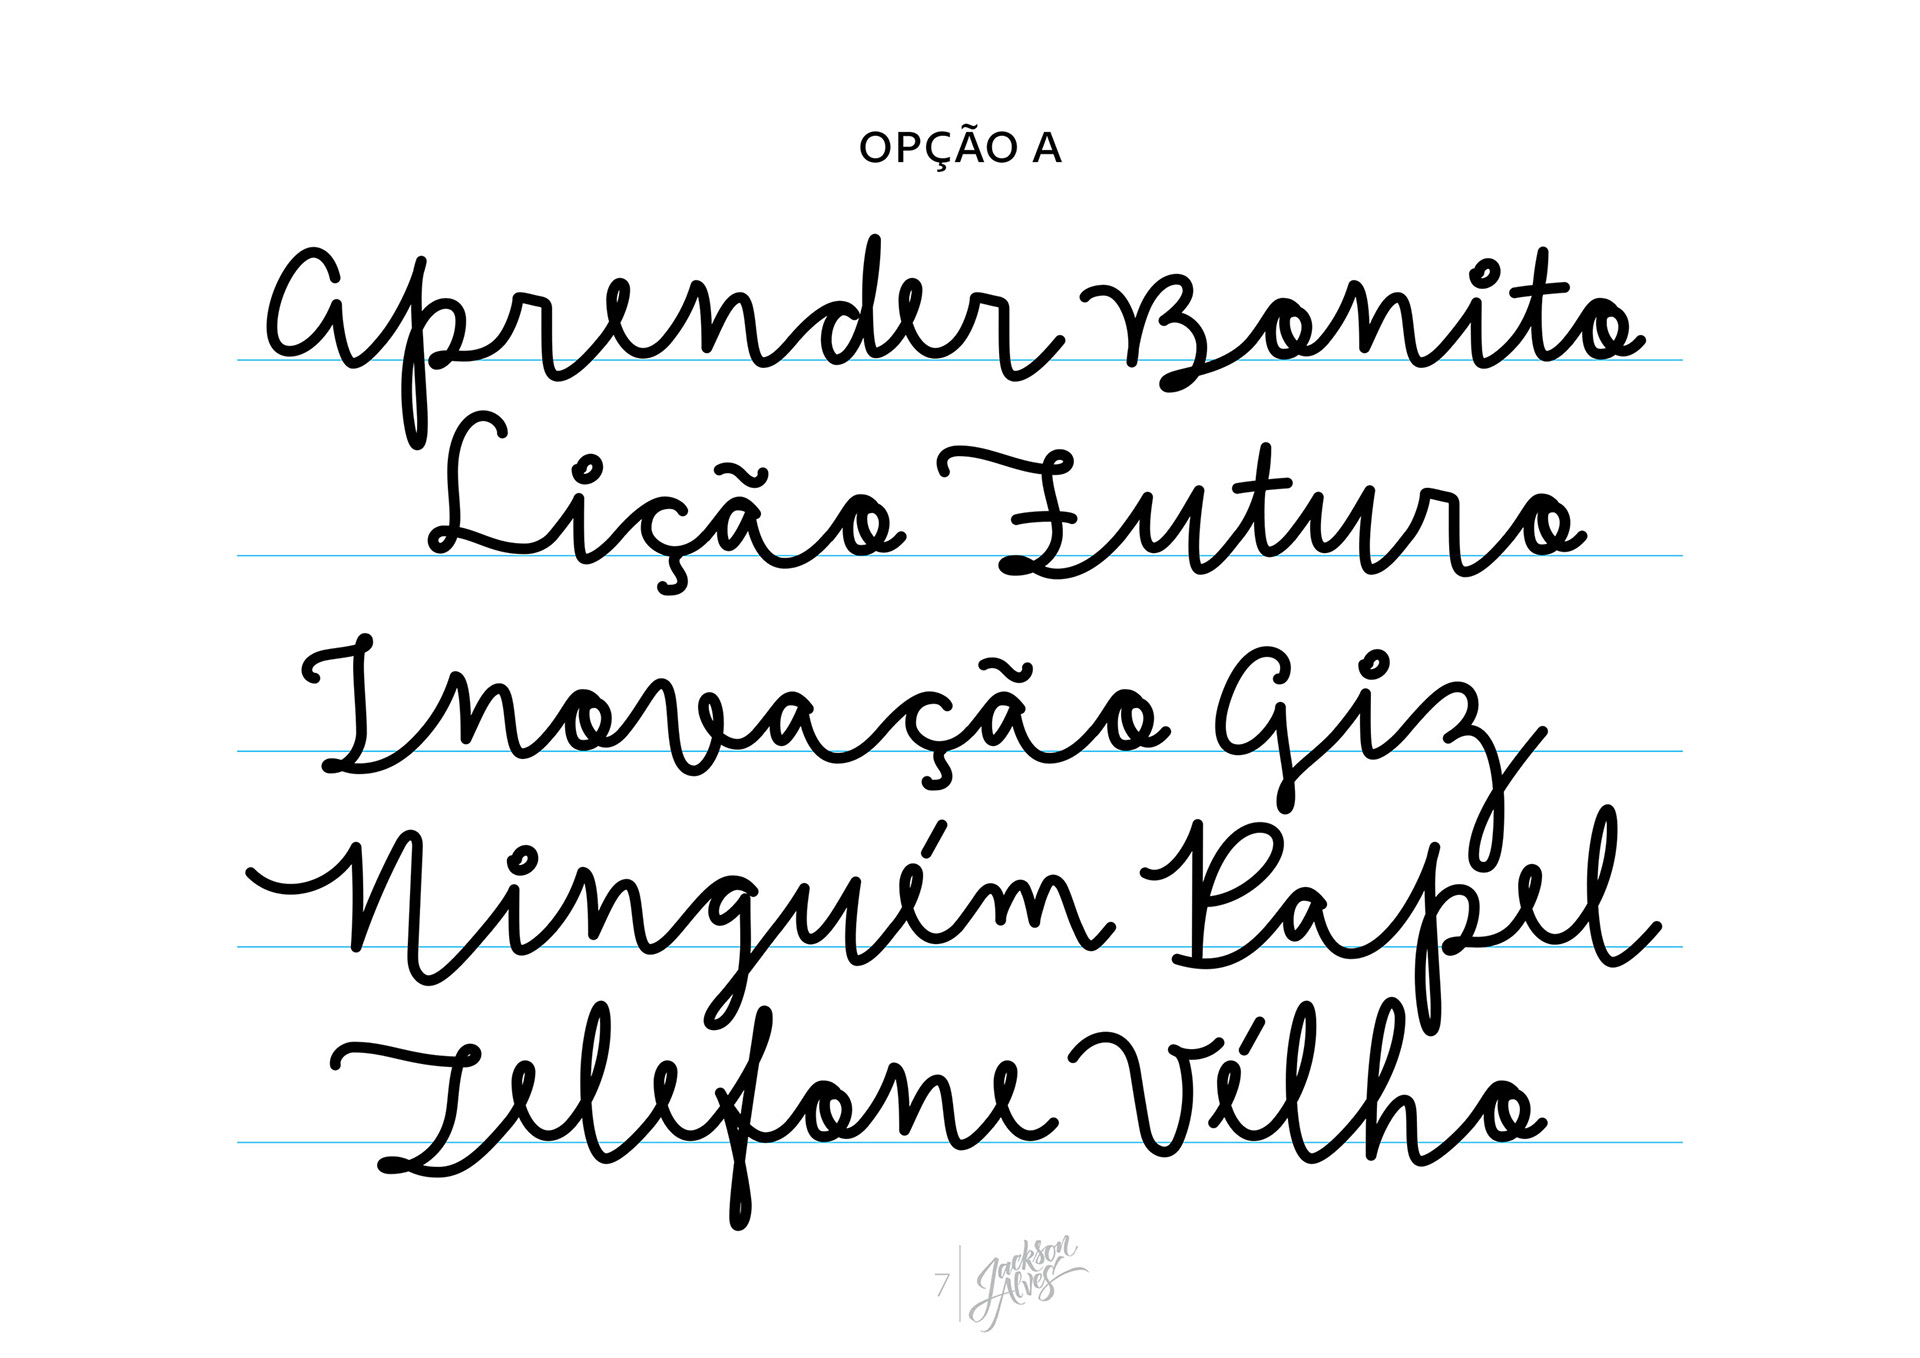 OPÇÃO A
Aprender Bonito
Lição Futuro
Inovação Giz
Ninguém Papel
Telefone Vélho
7 Jackson Alves